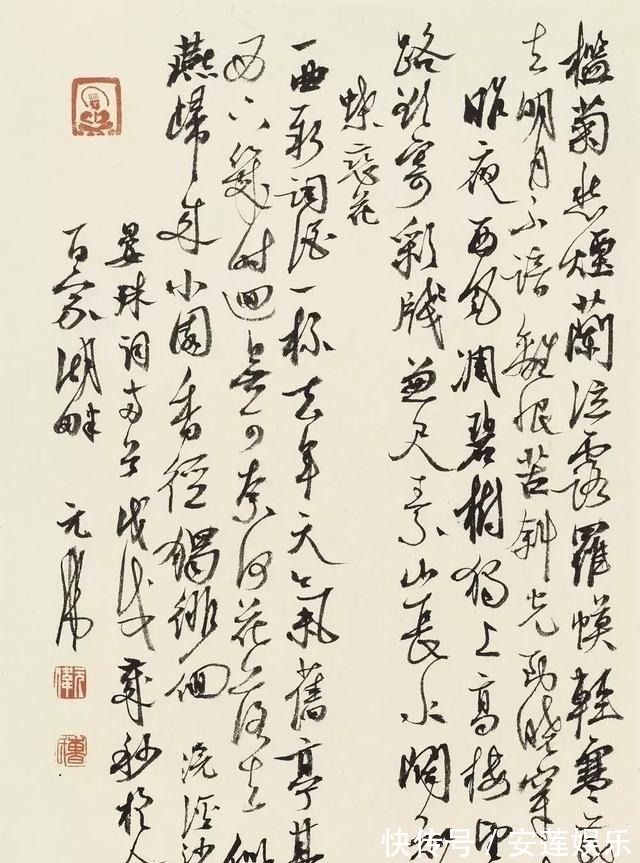 檻菊愁煙蘭泣露羅幙輕寒
去明月不諳離恨苦斜光到曉穿
昨夜西風凋碧樹獨上高樓望
路欲寄彩牋兼尺素山長水闊
蝶戀花
一曲新詞酒一杯去年天氣舊亭
西下幾時迴無可奈何花落去似
燕歸來小園香徑獨徘徊 浣溪沙
晏殊詞兩首戊戌歲秒於人
百家湖畔 元
快传号/安莲娱乐